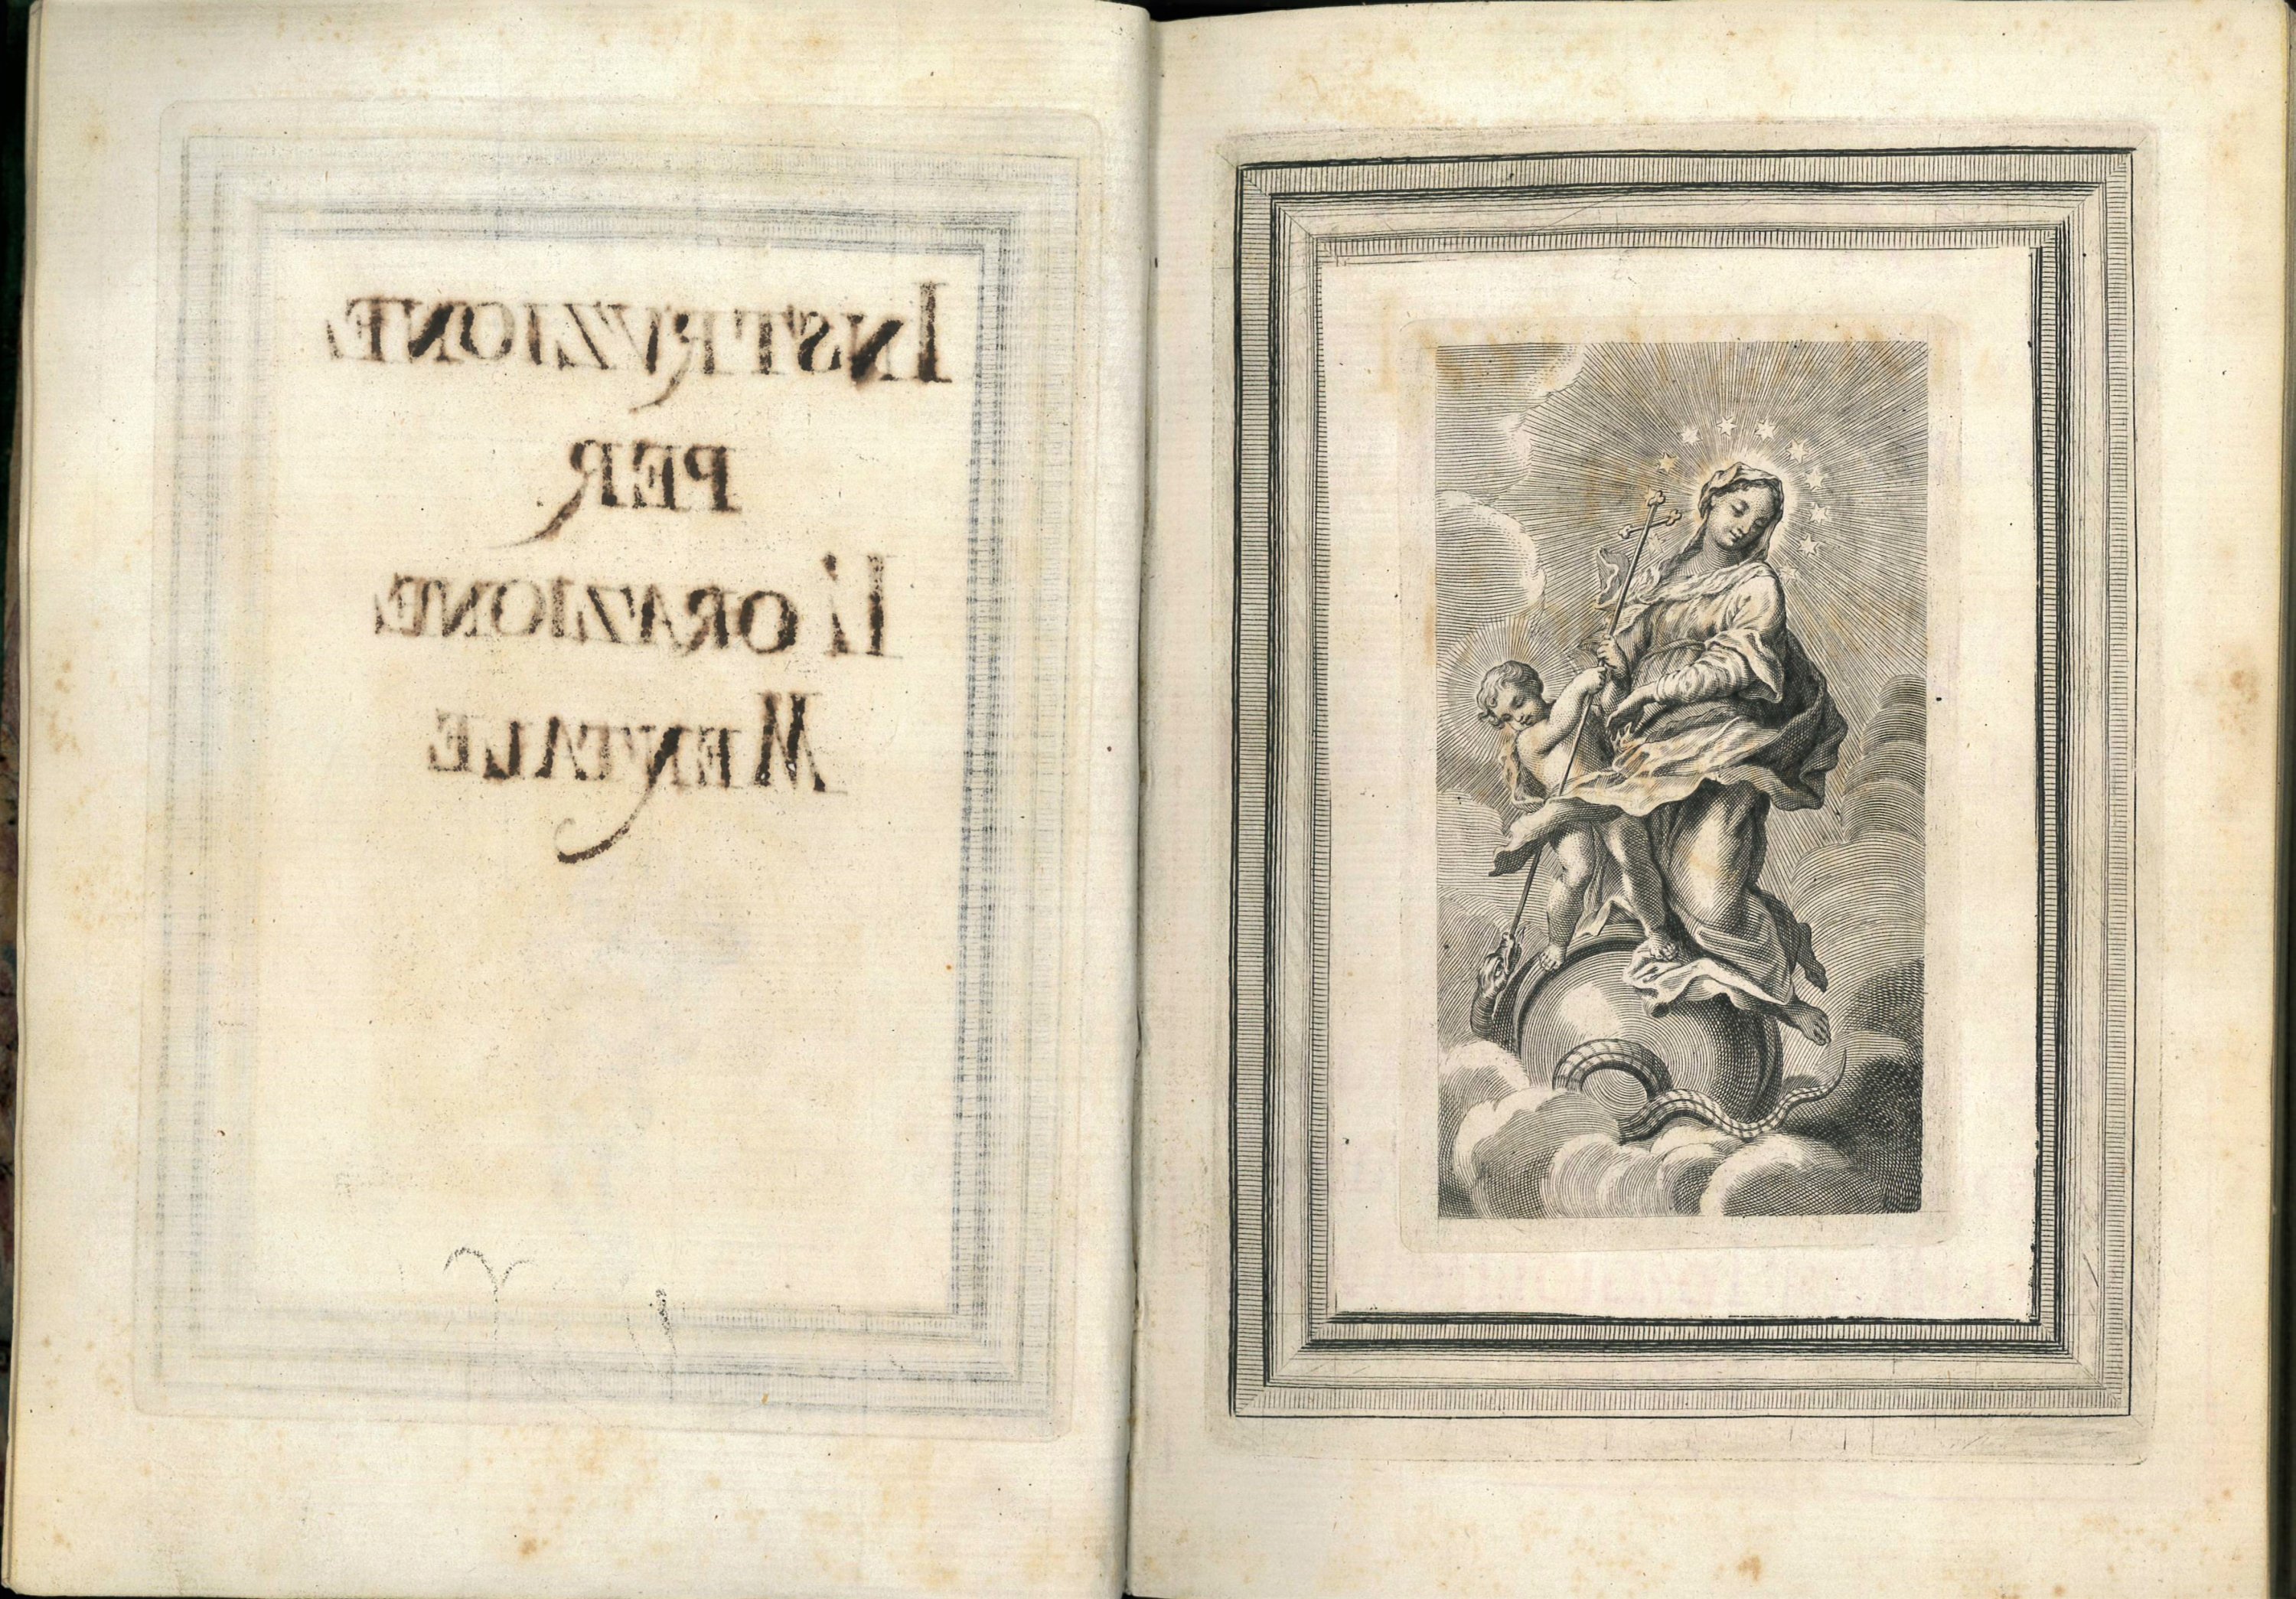 INSTRVZIONE
PER
L'ORAZIONE
MENTALE